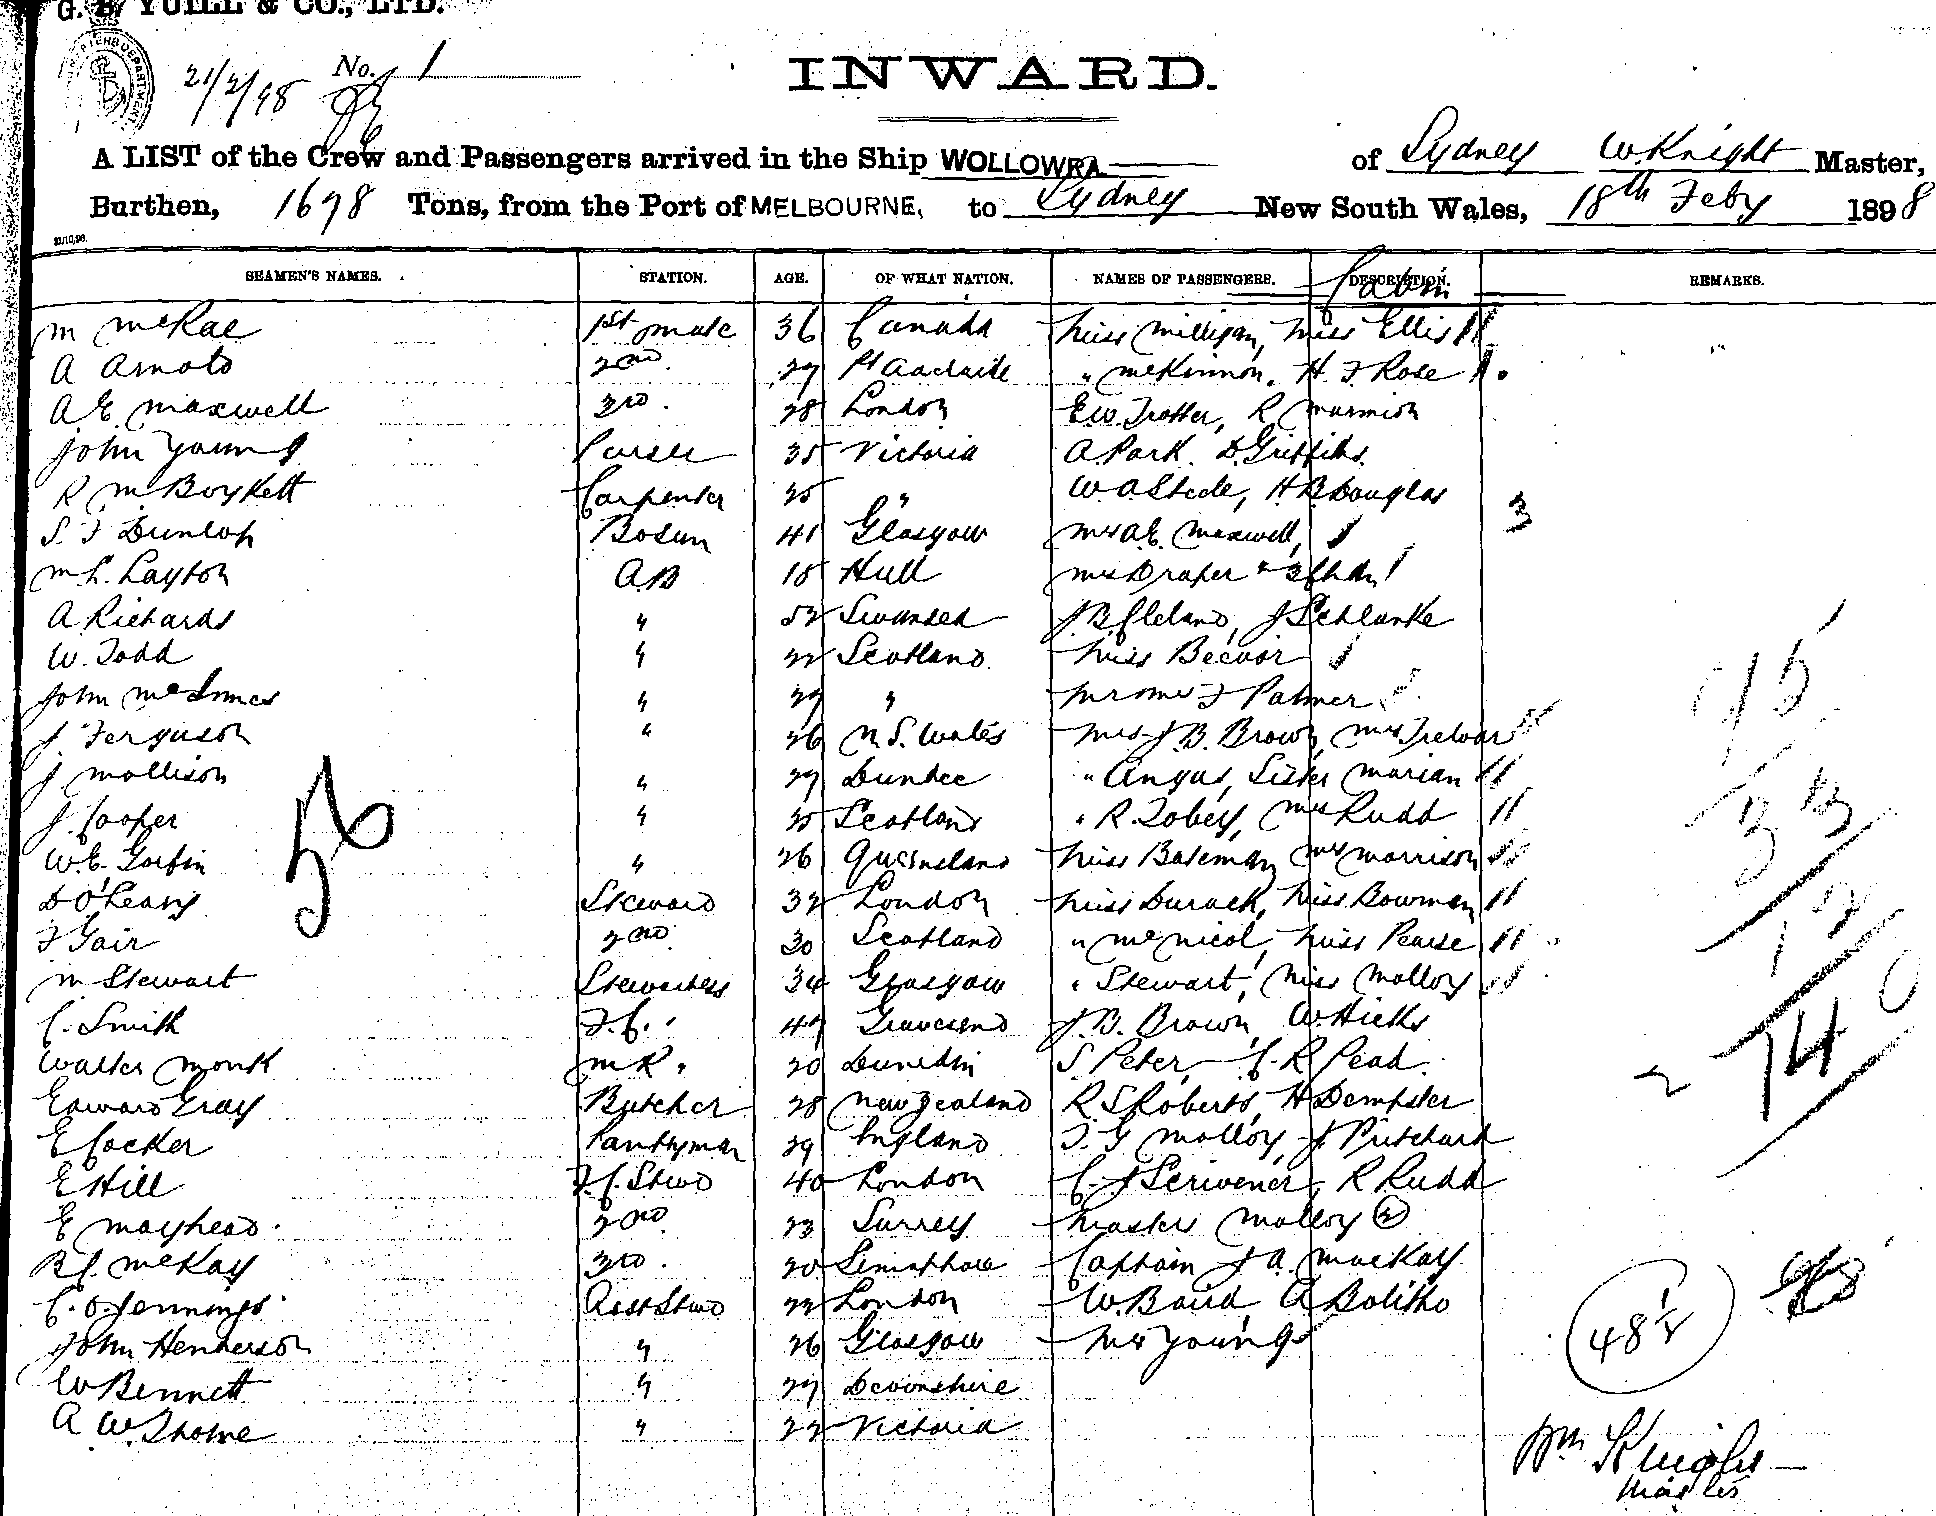 G. B. YUILL & CO., LTD.
21/2/98 No. 1
INWARD.
A LIST of the Crew and Passengers arrived in the Ship WOLLOWRA of Sydney W. Knight Master,
Burthen, 1698 Tons, from the Port of MELBOURNE, to Sydney New South Wales, 18th Feby 1898
SEAMEN'S NAMES. STATION. AGE. OF WHAT NATION. NAMES OF PASSENGERS. DESCRIPTION. REMARKS.
Cabin
M McRae 1st mate 36 Canada Miss Milligan, Miss Ellis
A Arnold 2nd 27 Pt Adelaide " McKinnon, H. F Rose
A E Maxwell 3rd 28 London E W Trotter, R Marmion
John Young Purser 35 Victoria A. Park. D. Griffiths
R M Boykett Carpenter 25 " W. A Steele, H B Douglas
S. F Dunlop Bosun 41 Glasgow Mrs A. E. Maxwell, 3
M. L. Layton AB 18 Hull Mrs Draper
A Richards " 52 Swansea J. B Cleland, J Schlanke
W. Todd " 22 Scotland Miss Becvor
John McInnes " 29 " Mr & Mrs F Palmer
J. Ferguson " 26 N. S. Wales Mrs J. B. Brown, Mrs Trewar
J Mollison " 27 Dundee " Angus, Sister Marian
J. Cooper " 25 Scotland " R. Tobey, Mrs Rudd
W. E. Gorbin " 26 Queensland Miss Bateman, Mrs Morrison
D O'Leary Steward 32 London Miss Durack, Miss Bowman
F Gair 2nd 30 Scotland " McNicol, Miss Pearse
M Stewart Stewardess 34 Glasgow " Stewart, Miss Molloy
C. Smith F. C. 47 Gravesend J. B. Brown, W. Hicks
Walter Monk M R. 20 Dunedin S Peter, C. R Pead.
Edward Gray Butcher 28 New Zealand R S Roberts, H Dempster
E Cocker Pantryman 29 England T. G Molloy, J Pritchard
E Hill F. C. Stwd 40 London C. J Scrivener, R Rudd
E Mayhead. 2nd 23 Surrey Masters Molloy (2)
R J. McKay 3rd. 20 Semaphore Captain J A. MacKay
C. O. Jennings Asst Stwd 22 London W. Baird, A Bolitho
John Henderson " 26 Glasgow Mrs Young
W Bennett " 27 Devonshire
A. W. Thorne " 22 Victoria
74
48 1/2
Wm Knight
Master